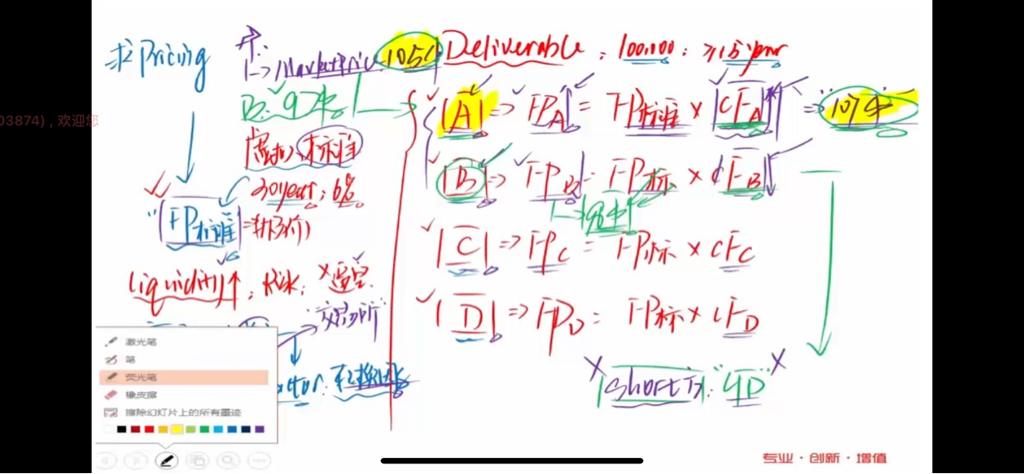 求pricing
Market price 105
Deliverable: 100,000: ≥15 year
|A| => FP_A = FP标准 × CF_A => 107
03874），欢迎您
B: 92
虚拟 标准
30year: 6%
|B| => FP_B = FP标 × CF_B
98
"FP标准" =
|C| => FP_C = FP标 × CF_C
liquidity↑, risk, ×逼空
|D| => FP_D = FP标 × CF_D
交易所
short方: 4D
激光笔
笔
荧光笔
橡皮擦
擦除幻灯片上的所有墨迹
专业·创新·增值